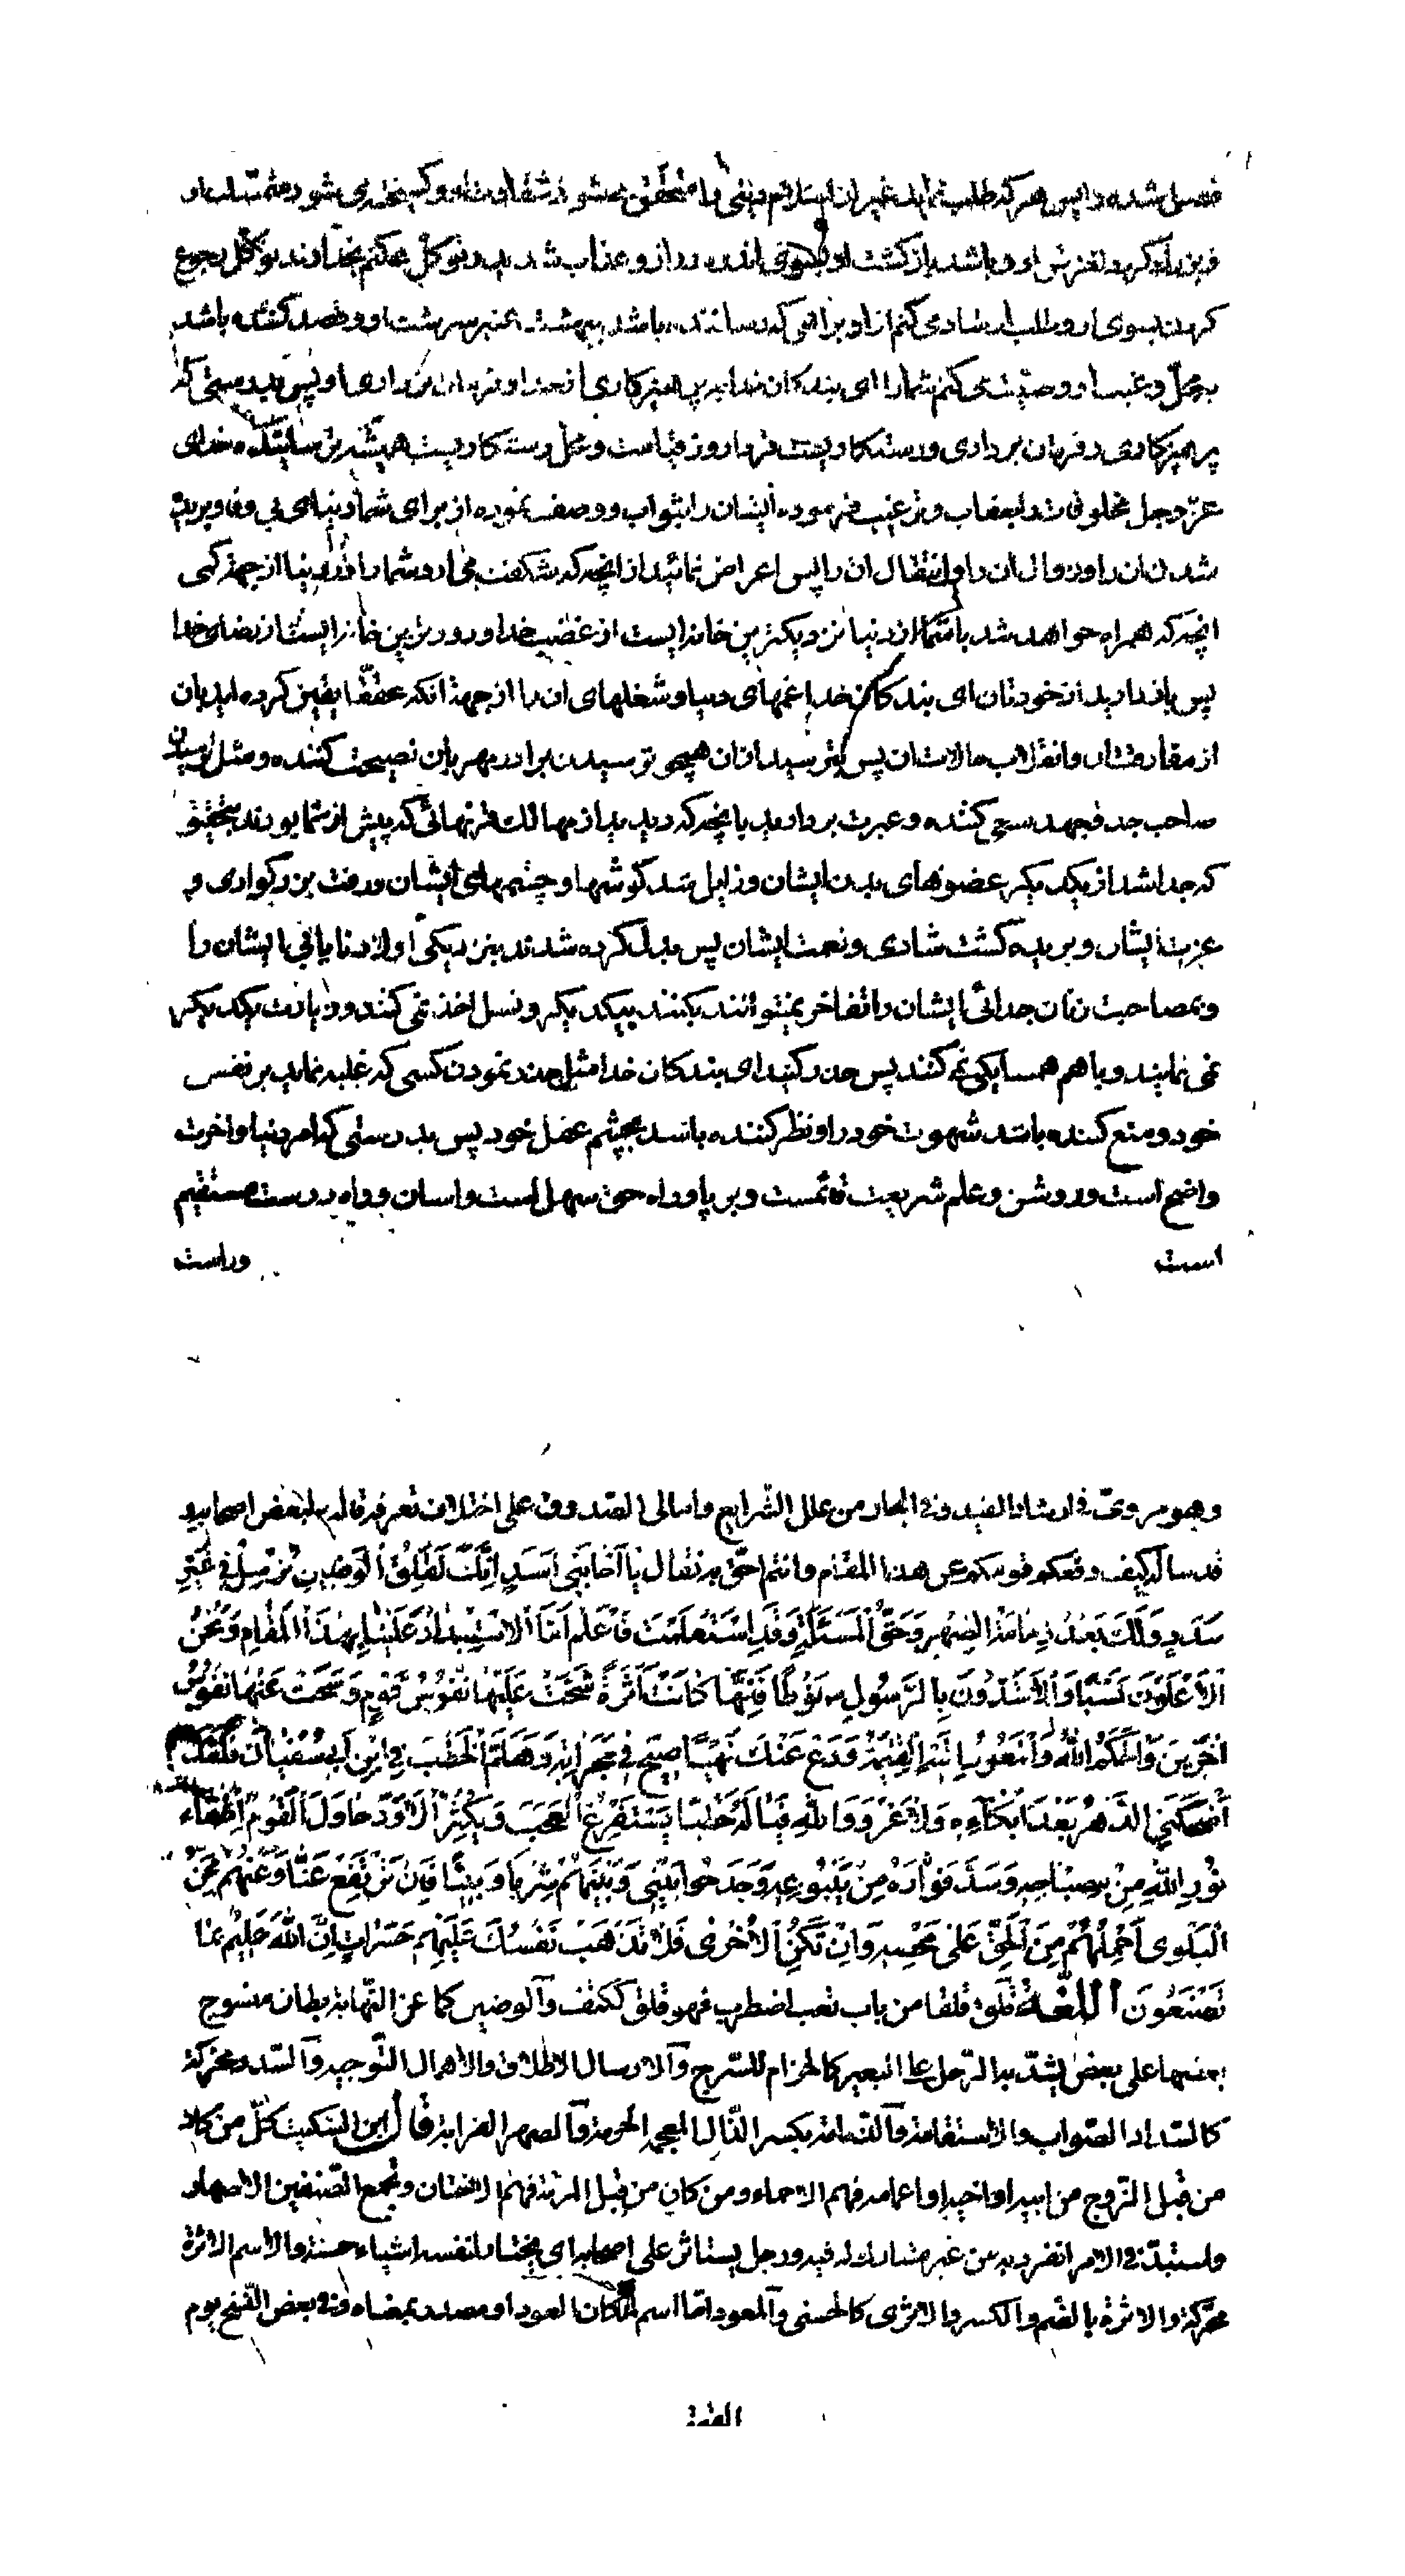 فصل شده را پس هر که طلب نماید غیر از اسلام دینی را متحقق میشود شقاوت او و کسیخته می شود متمسک او
فرین راه کرد لغزش او و باشد بازکشت او بسوی اندوه دراز و عذاب شدید و توکل میکنم بخداوند توکل رجوع
کردن بسوی او و طلب ارشاد می کنم از او براهی که رساننده باشد ببهشت عنبر سرشت او و قصد کننده باشد
بمحل رغبت او و وصیت می کنم شما را ای بندکان خدا بپرهیزکاری از خدا و فرمان برداری او پس بدرستی که
پرهیزکاری و فرمان برداری ورستکاریست فردا روز قیامت و محل رستکاریست همیشه ترسانیده خدای
عز وجل مخلوقات را بعقاب و ترغیب فرموده ایشان را بثواب و وصف نموده از برای شما دنیای بی وفا و بریده
شدن ان را و زوال ان را و انتقال ان را پس اعراض نمائید از انچه که شکفت می ارد شما را در دنیا از جهة کمی
انچه که همراه خواهد شد با شما از دنیا نزدیکترین خانه ایست از غضب خدا و دورترین خانه ایست از رضای خدا
پس باز دارید از خودتان ای بندکان خدا غمهای دنیا و شغلهای ان را از جهة انکه محققا یقین کرده اید بان
از مفارقت ان و انقلاب حالات ان پس بترسید از ان همچو ترسیدن برادر مهربان نصیحت کننده و مثل ترسیدن
صاحب جد و جهد سعی کننده و عبرت بردارید بانچه که دیدید از مهالک قرنهائی که پیش از شما بودند بتحقیق
که جدا شد از یکدیکر عضوهای بدن ایشان و زایل شد کوشها و چشمهای ایشان و رفت بزرکواری و
عزت ایشان و بریده کشت شادی و نعمت ایشان پس بدل کرده شدند بنزدیکی اولاد نایابی ایشان را
و بمصاحبت زنان جدائی ایشان را تفاخر نمیتوانند بکنند بیکدیکر و نسل اخذ نمی کنند و زیارت یکدیکر
نمی نمایند و با هم همسایکی نمی کنند پس حذر کنید ای بندکان خدا مثل حذر نمودن کسی که غلبه نماید بر نفس
خود و منع کننده باشد شهوت خود را و نظر کننده باشد بچشم عقل خود پس بدرستی که امر دنیا و اخرت
واضح است و روشن و علم شریعت قائمست و بر پا و راه حق سهل است و اسان و راه درست مستقیم
است وراست
وهو مروی فی ارشاد المفید و فی البحار من علل الشرایع و امالی الصدوق علی اختلاف تعرفه قاله لبعض اصحابه
قد سأله کیف دفعکم قومکم عن هذا المقام و انتم احق به فقال یا اَخا بَنی اَسَدٍ اِنَّکَ لَقَلِقُ الْوَضینِ تُرْسِلُ فی غَیْرِ
سَدَدٍ وَ لَکَ بَعْدُ ذِمامَةُ الصِّهْرِ وَ حَقُّ الْمَسْئَلَةِ وَ قَدِ اسْتَعْلَمْتَ فَاعْلَمْ اَمَّا الْاِسْتِبْدادُ عَلَیْنا بِهذَا الْمَقامِ وَ نَحْنُ
الْاَعْلَوْنَ نَسَبًا وَ الْاَشَدُّونَ بِالرَّسُولِ نَوْطًا فَاِنَّها کانَتْ اَثَرَةً شَحَّتْ عَلَیْها نُفُوسُ قَوْمٍ وَ سَخَتْ عَنْها نُفُوسُ
اخَرینَ وَ الْحَکَمُ اللّٰهُ وَ الْمَعْوَدُ اِلَیْهِ الْقِیٰمَةُ وَ دَعْ عَنْکَ نَهْبًا صیحَ فی حَجَراتِه وَ هَلُمَّ الْخَطْبَ فِی ابْنِ اَبی سُفْیانَ فَلَقَدْ
اَضْحَکَنِی الدَّهْرُ بَعْدَ اِبْکآئِهِ وَ لا غَرْوَ وَ اللّٰهِ فَیا لَهُ خَطْبًا یَسْتَفْرِغُ الْعَجَبَ وَ یُکْثِرُ الْاَوَدَ حاوَلَ الْقَوْمُ اِطْفاءَ
نُورِ اللّٰهِ مِنْ مِصْباحِه وَ سَدَّ فَوّارِه مِنْ یَنْبُوعِه وَ جَدَحُوا بَیْنی وَ بَیْنَهُمْ شِرْبًا وَبیئًا فَاِنْ تَرْتَفِعْ عَنّا وَ عَنْهُمْ مِحَنُ
الْبَلْوی اَحْمِلُهُمْ مِنَ الْحَقِّ عَلی مَحْضِه وَ اِنْ تَکُنِ الْاُخْری فَلا تَذْهَبْ نَفْسُکَ عَلَیْهِمْ حَسَراتٍ اِنَّ اللّٰهَ عَلیمٌ بِما
تَصْنَعُونَ اللغة قلق قلقا من باب تعب اضطرب فهو قلق ککتف و الوضین کما عن النهایة بطان منسوج
بعضها علی بعض یشد به الرحل علی البعیر کالحزام للسرج و الارسال الاطلاق و الاهمال التوجیه و السدد محرکة
کالسداد الصواب و الاستقامة و الذمامة بکسر الذال المعجمة الحرمة و الصهر القرابة قال ابن السکیت کل من کان
من قبل الزوج من ابیه او اخیه او اعمامه فهم الاحماء و من کان من قبل المرئة فهم الاختان و یجمع الصنفین الاصهار
و استبد فی الامر انفرد به من غیر مشارک له فیه و رجل یستاثر علی اصحابه ای یختار لنفسه اشیاء حسنة و الاسم الاثرة
محرکة و الاثرة بالضم و الکسر و الاثری کالحسنی و المعود اما اسم لمکان العود او مصدر بمعناه و فی بعض النسخ یوم
القیمة